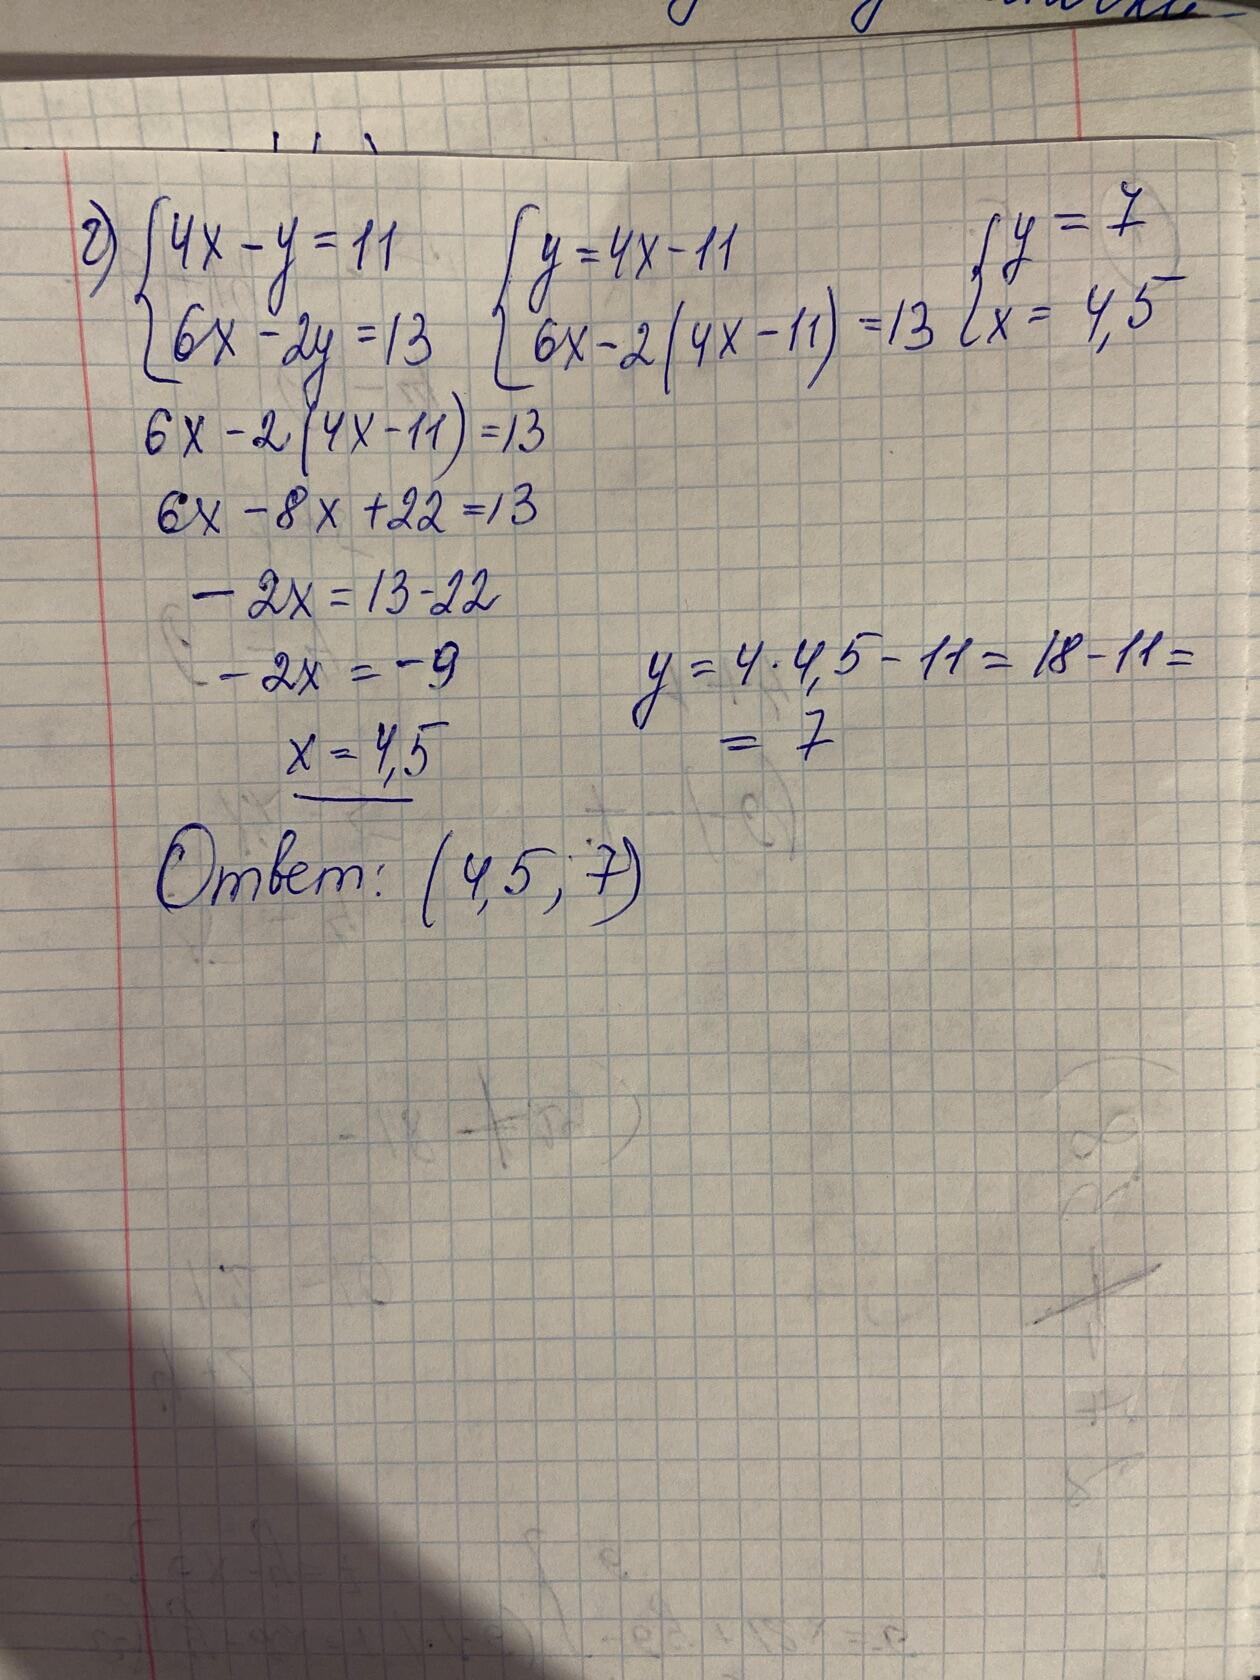 г) {4x - y = 11 {y = 4x - 11 {y = 7
{6x - 2y = 13 {6x - 2(4x - 11) = 13 {x = 4,5
6x - 2(4x - 11) = 13
6x - 8x + 22 = 13
- 2x = 13 - 22
- 2x = -9
x = 4,5
y = 4 · 4,5 - 11 = 18 - 11 =
= 7
Ответ: (4,5; 7)